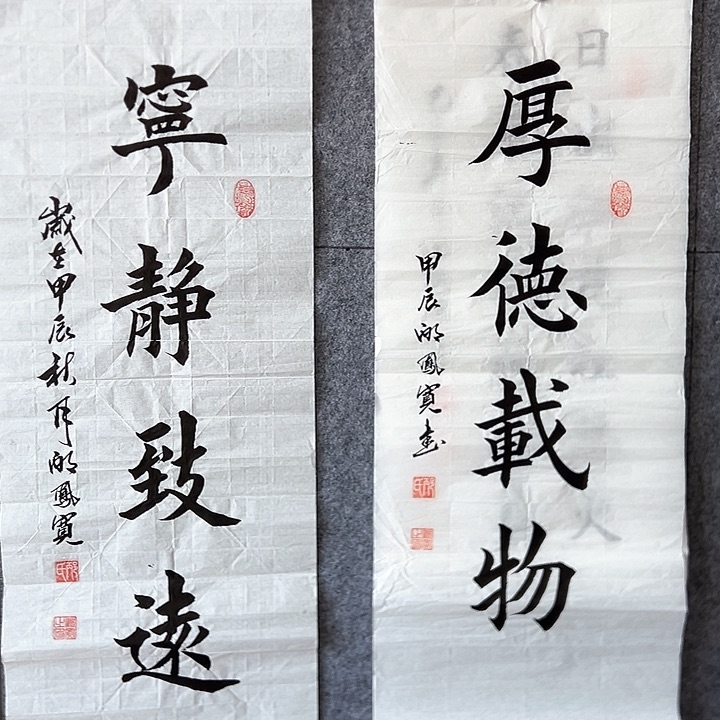 厚德載物
甲辰 鳳寬書
寧靜致遠
歲在甲辰秋月 鳳寬